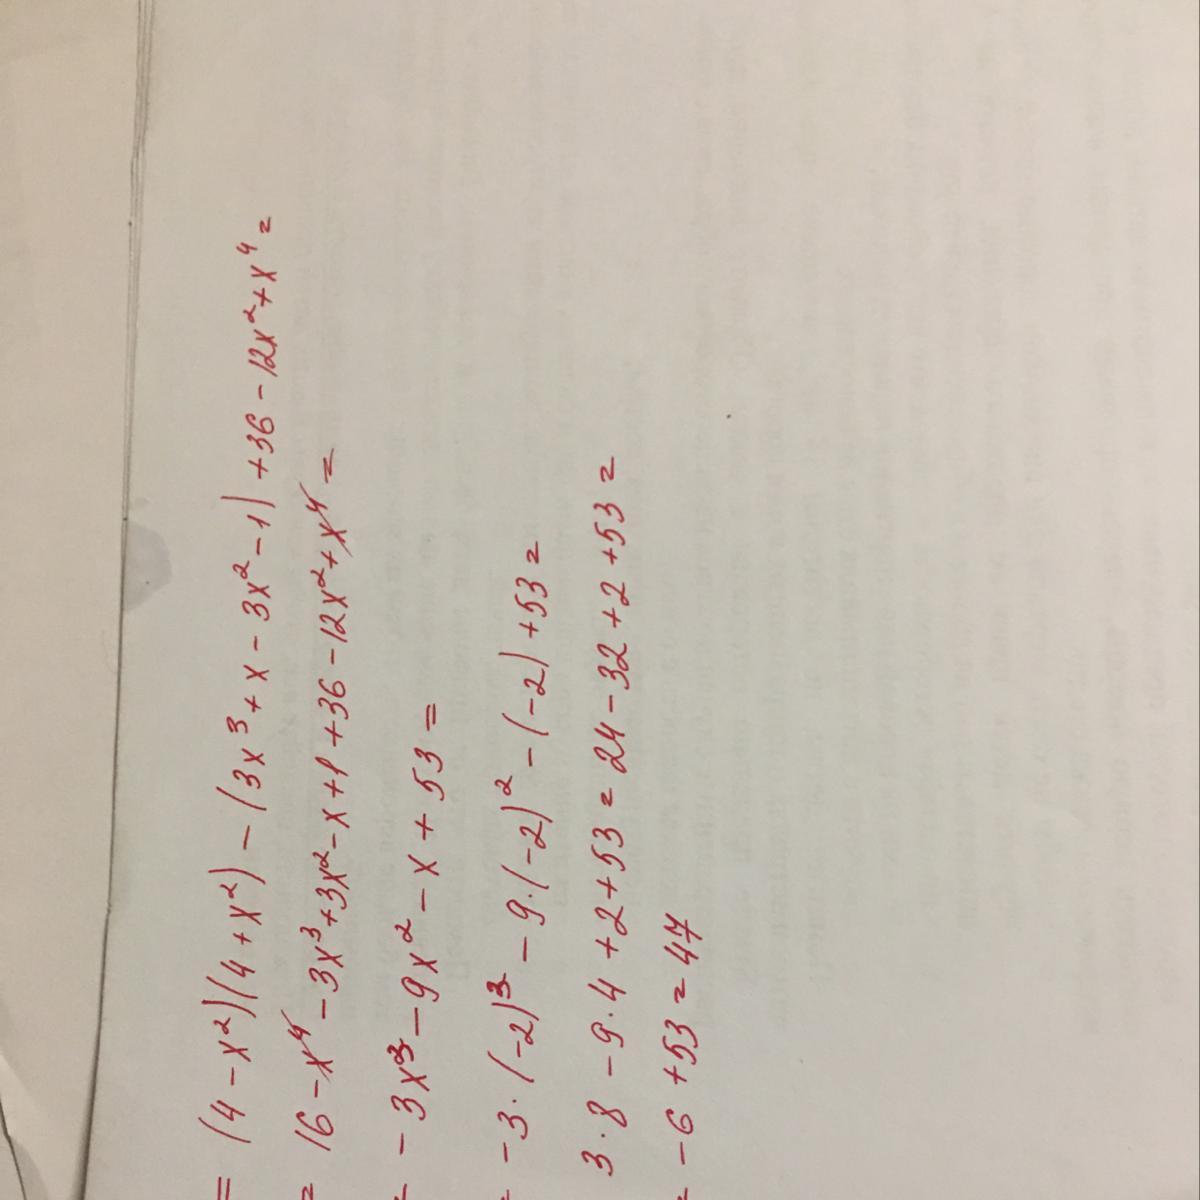 = (4 - x²)(4 + x²) - (3x³ + x - 3x² - 1) + 36 - 12x² + x⁴ =
= 16 - x⁴ - 3x³ + 3x² - x + 1 + 36 - 12x² + x⁴ =
= - 3x³ - 9x² - x + 53 =
= -3 · (-2)³ - 9 · (-2)² - (-2) + 53 =
3 · 8 - 9 · 4 + 2 + 53 = 24 - 32 + 2 + 53 =
= -6 + 53 = 47